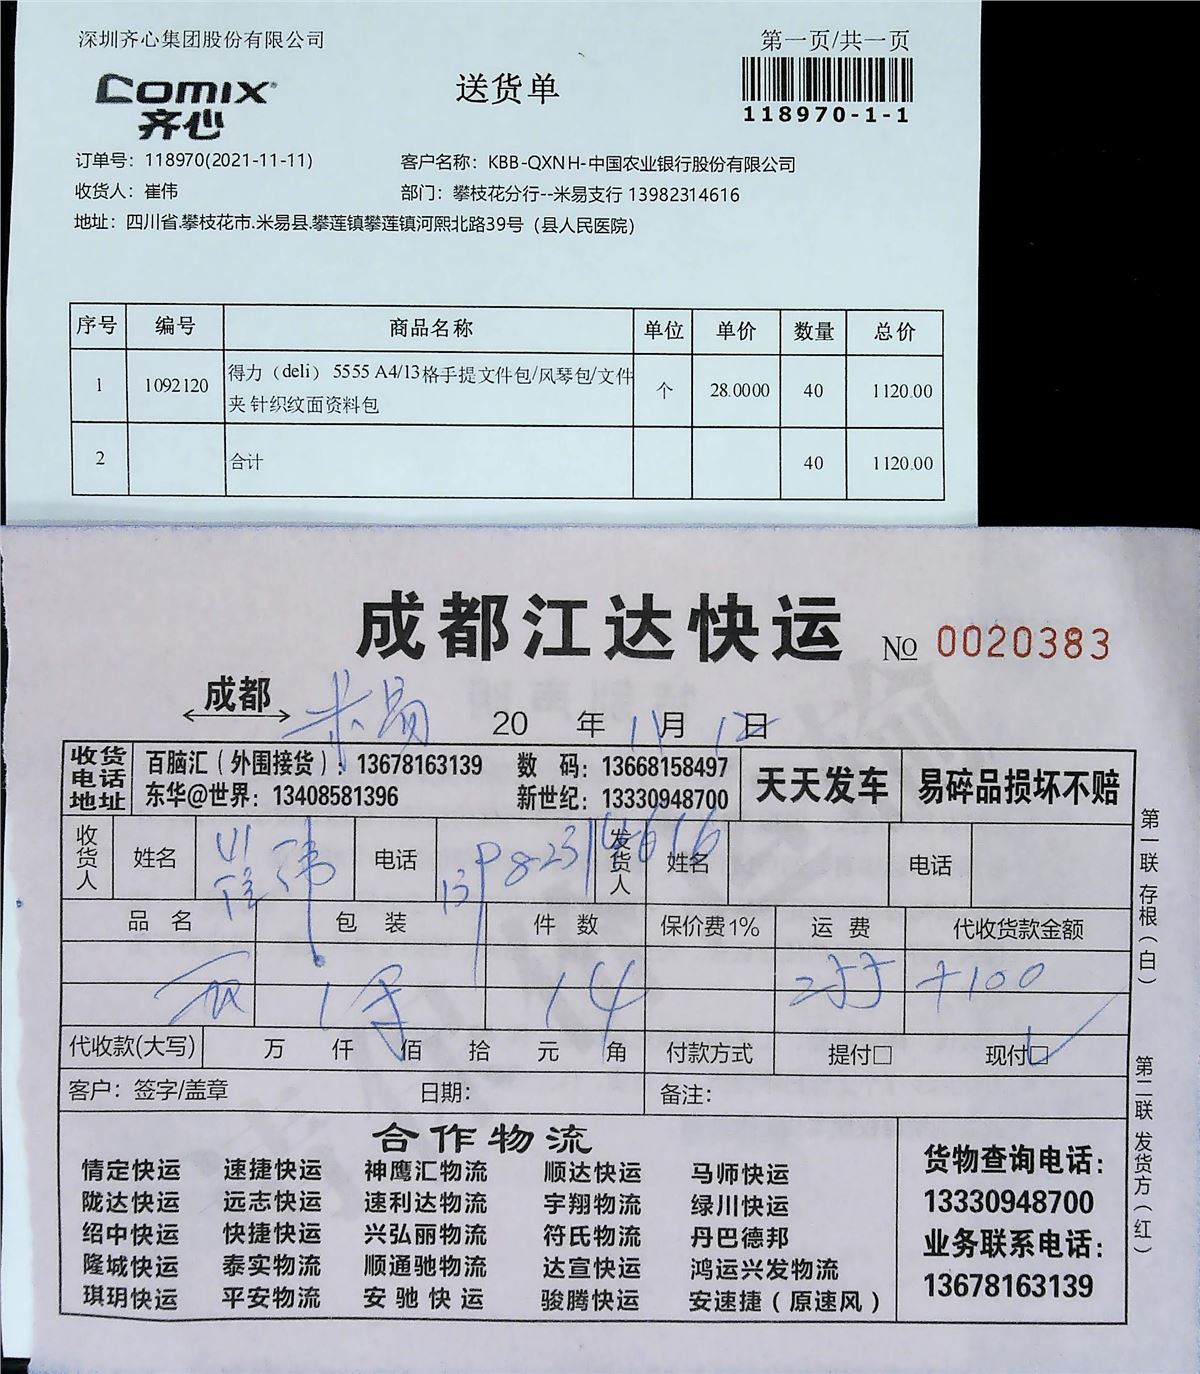 深圳齐心集团股份有限公司
第一页/共一页
COMIX
齐心
送货单
118970-1-1
订单号：118970(2021-11-11)
客户名称：KBB-QXNH-中国农业银行股份有限公司
收货人：崔伟
部门：攀枝花分行--米易支行 13982314616
地址：四川省.攀枝花市.米易县.攀莲镇攀莲镇河熙北路39号（县人民医院）
序号 编号 商品名称 单位 单价 数量 总价
1 1092120 得力（deli） 5555 A4/13格手提文件包/风琴包/文件夹 针织纹面资料包 个 28.0000 40 1120.00
2 合计 40 1120.00
成都江达快运
№ 0020383
成都 米易 20 年 11月 12日
收货电话地址
百脑汇（外围接货）：13678163139 数 码：13668158497
东华@世界：13408581396 新世纪：13330948700
天天发车 易碎品损坏不赔
收货人 姓名 崔伟 电话 13982314616 发货人 姓名 电话
品 名 包 装 件 数 保价费1% 运 费 代收货款金额
14 +100
代收款(大写) 万 仟 佰 拾 元 角 付款方式 提付□ 现付□
客户：签字/盖章 日期： 备注：
合作物流
情定快运 速捷快运 神鹰汇物流 顺达快运 马师快运
陇达快运 远志快运 速利达物流 宇翔物流 绿川快运
绍中快运 快捷快运 兴弘丽物流 符氏物流 丹巴德邦
隆城快运 泰实物流 顺通驰物流 达宣快运 鸿运兴发物流
琪玥快运 平安物流 安驰快运 骏腾快运 安速捷（原速风）
货物查询电话：
13330948700
业务联系电话：
13678163139
第一联 存根（白）
第二联 发货方（红）